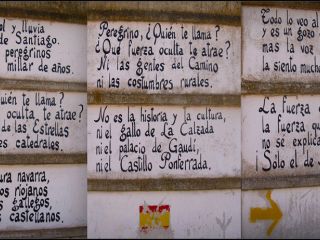 ol y lluvia
de Santiago.
peregrinos
millar de años.
uién te llama?
oculta te atrae?
de las Estrellas
es catedrales.
ura navarra,
os riojanos
s gallegos,
s castellanos.
Peregrino, ¿Quién te llama?
¿Qué fuerza oculta te atrae?
Ni las gentes del Camino
ni las costumbres rurales.
No es la historia y la cultura,
ni el gallo de La Calzada
ni el palacio de Gaudí,
ni el Castillo Ponferrada.
Todo lo veo al
y es un gozo
mas la voz
la siento mucho
La fuerza
la fuerza qu
no sé explica
¡Solo el de